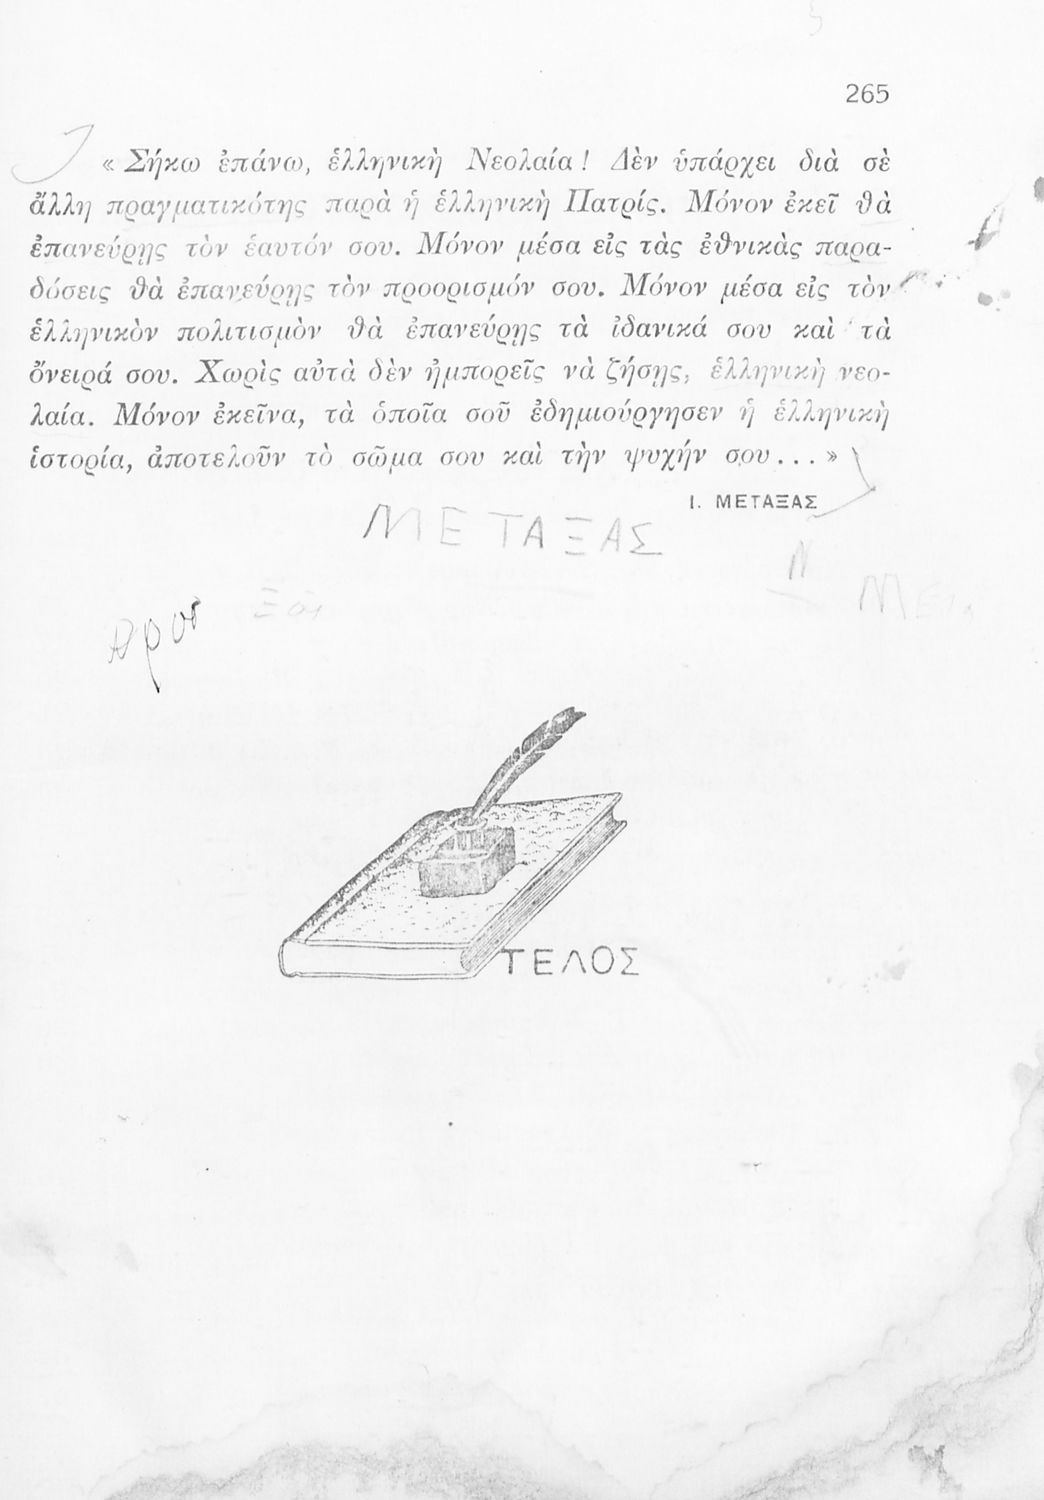 265
« Σήκω ἐπάνω, ἑλληνικὴ Νεολαία ! Δὲν ὑπάρχει διὰ σὲ
ἄλλη πραγματικότης παρὰ ἡ ἑλληνικὴ Πατρίς. Μόνον ἐκεῖ θὰ
ἐπανεύρῃς τὸν ἑαυτόν σου. Μόνον μέσα εἰς τὰς ἐθνικὰς παρα-
δόσεις θὰ ἐπανεύρῃς τὸν προορισμόν σου. Μόνον μέσα εἰς τὸν
ἑλληνικὸν πολιτισμὸν θὰ ἐπανεύρῃς τὰ ἰδανικά σου καὶ τὰ
ὄνειρά σου. Χωρὶς αὐτὰ δὲν ἠμπορεῖς νὰ ζήσῃς, ἑλληνικὴ νεο-
λαία. Μόνον ἐκεῖνα, τὰ ὁποῖα σοῦ ἐδημιούργησεν ἡ ἑλληνικὴ
ἱστορία, ἀποτελοῦν τὸ σῶμα σου καὶ τὴν ψυχήν σου... »
Ι. ΜΕΤΑΞΑΣ
ΜΕΤΑΞΑΣ
ΤΕΛΟΣ